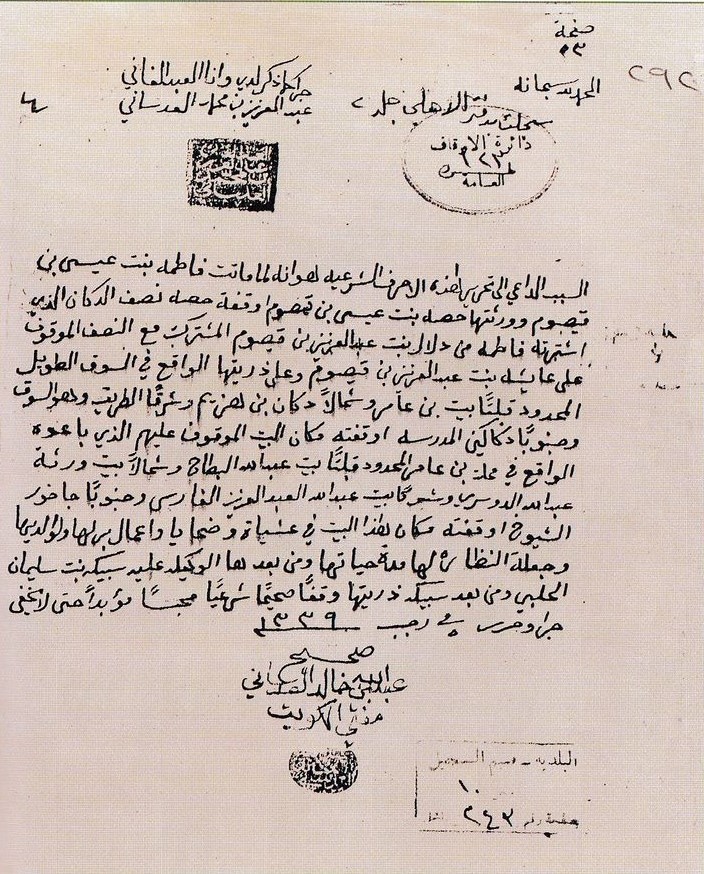 صفحة
٢٣
٢٩٢
الحمد لله سبحانه
جرى كما ذكر لدي وانا العبد الفاني
عبد العزيز بن محمد العدساني
سجلت بدفتر الاهلي جلد ٢
دائرة الاوقاف
العامة
السبب الداعي الى تحرير هذه الاحرف الشرعيه هو انه لما ماتت فاطمه بنت عيسى بن
قيصوم وورثتها حصه بنت عيسى بن قيصوم اوقفة حصه نصف الدكان الذي
اشترته فاطمه من دلال بنت عبد العزيز بن قيصوم المشترك مع النصف الموقوف
على عايشه بنت عبد العزيز بن قيصوم وعلى ذريتها الواقع في السوق الطويل
المحدود قبلتًا بيت بن عامر وشمالاً دكان بن هزيم وشرقًا الطريق وهو السوق
وجنوبًا دكاكين المدرسه اوقفته مكان البيت الموقوف عليهم الذي باعوه
الواقع في محلة بن عامر المحدود قبلتًا بيت عبد الله البطاح وشمالاً بيت ورثة
عبد الله الدوسري وشرقًا بيت عبد الله العبد العزيز الفارسي وجنوبًا جاخور
الشيوخ اوقفته مكان هذا البيت في عشيات وضحايا واعمال بر لها ولوالديها
وجعلة النظارة لها مدة حياتها ومن بعدها الوكيله عليه سبيكه بنت سليمان
الحلبي ومن بعد سبيكه ذريتها وقفًا صحيحًا شرعيًا محبسًا مؤبداً حتى لا يخفى
جرا وحرر في رجب ١٣٣٩
صحيح
عبد الله بن خالد العدساني
مفتي الكويت
البلدية - قسم التسجيل
١٠
٢٤٣